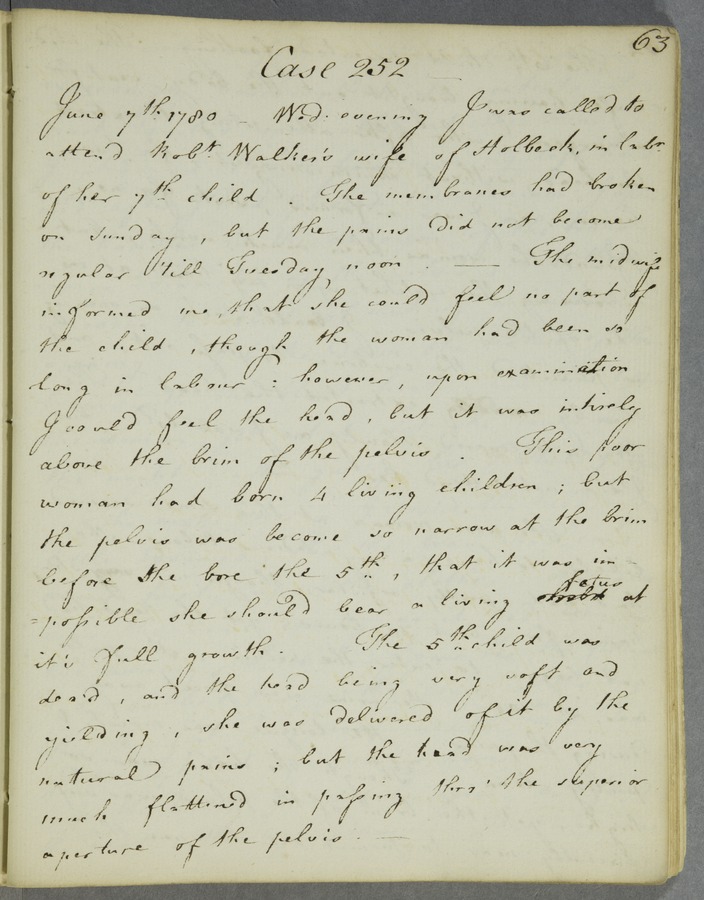 63
Case 252
June 7th. 1780 – Wed: evening I was called to
attend Robt. Walker's wife of Holbeck, in labr.
of her 7th. child . The membranes had broken
on sunday , but the pains did not become
regular 'till Tuesday noon . — The midwife
informed me, that she could feel no part of
the child , though the woman had been so
long in labour : however, upon examination
I could feel the head, but it was intirely
above the brim of the pelvis . This poor
woman had born 4 living children ; but
the pelvis was become so narrow at the brim
before she bore the 5th., that it was im
=possible she should bear a living fetus at
it's full growth. The 5th. child was
dead , and the head being very soft and
yielding , she was delivered of it by the
natural pains ; but the head was very
much flattened in passing thro' the superior
aperture of the pelvis . —